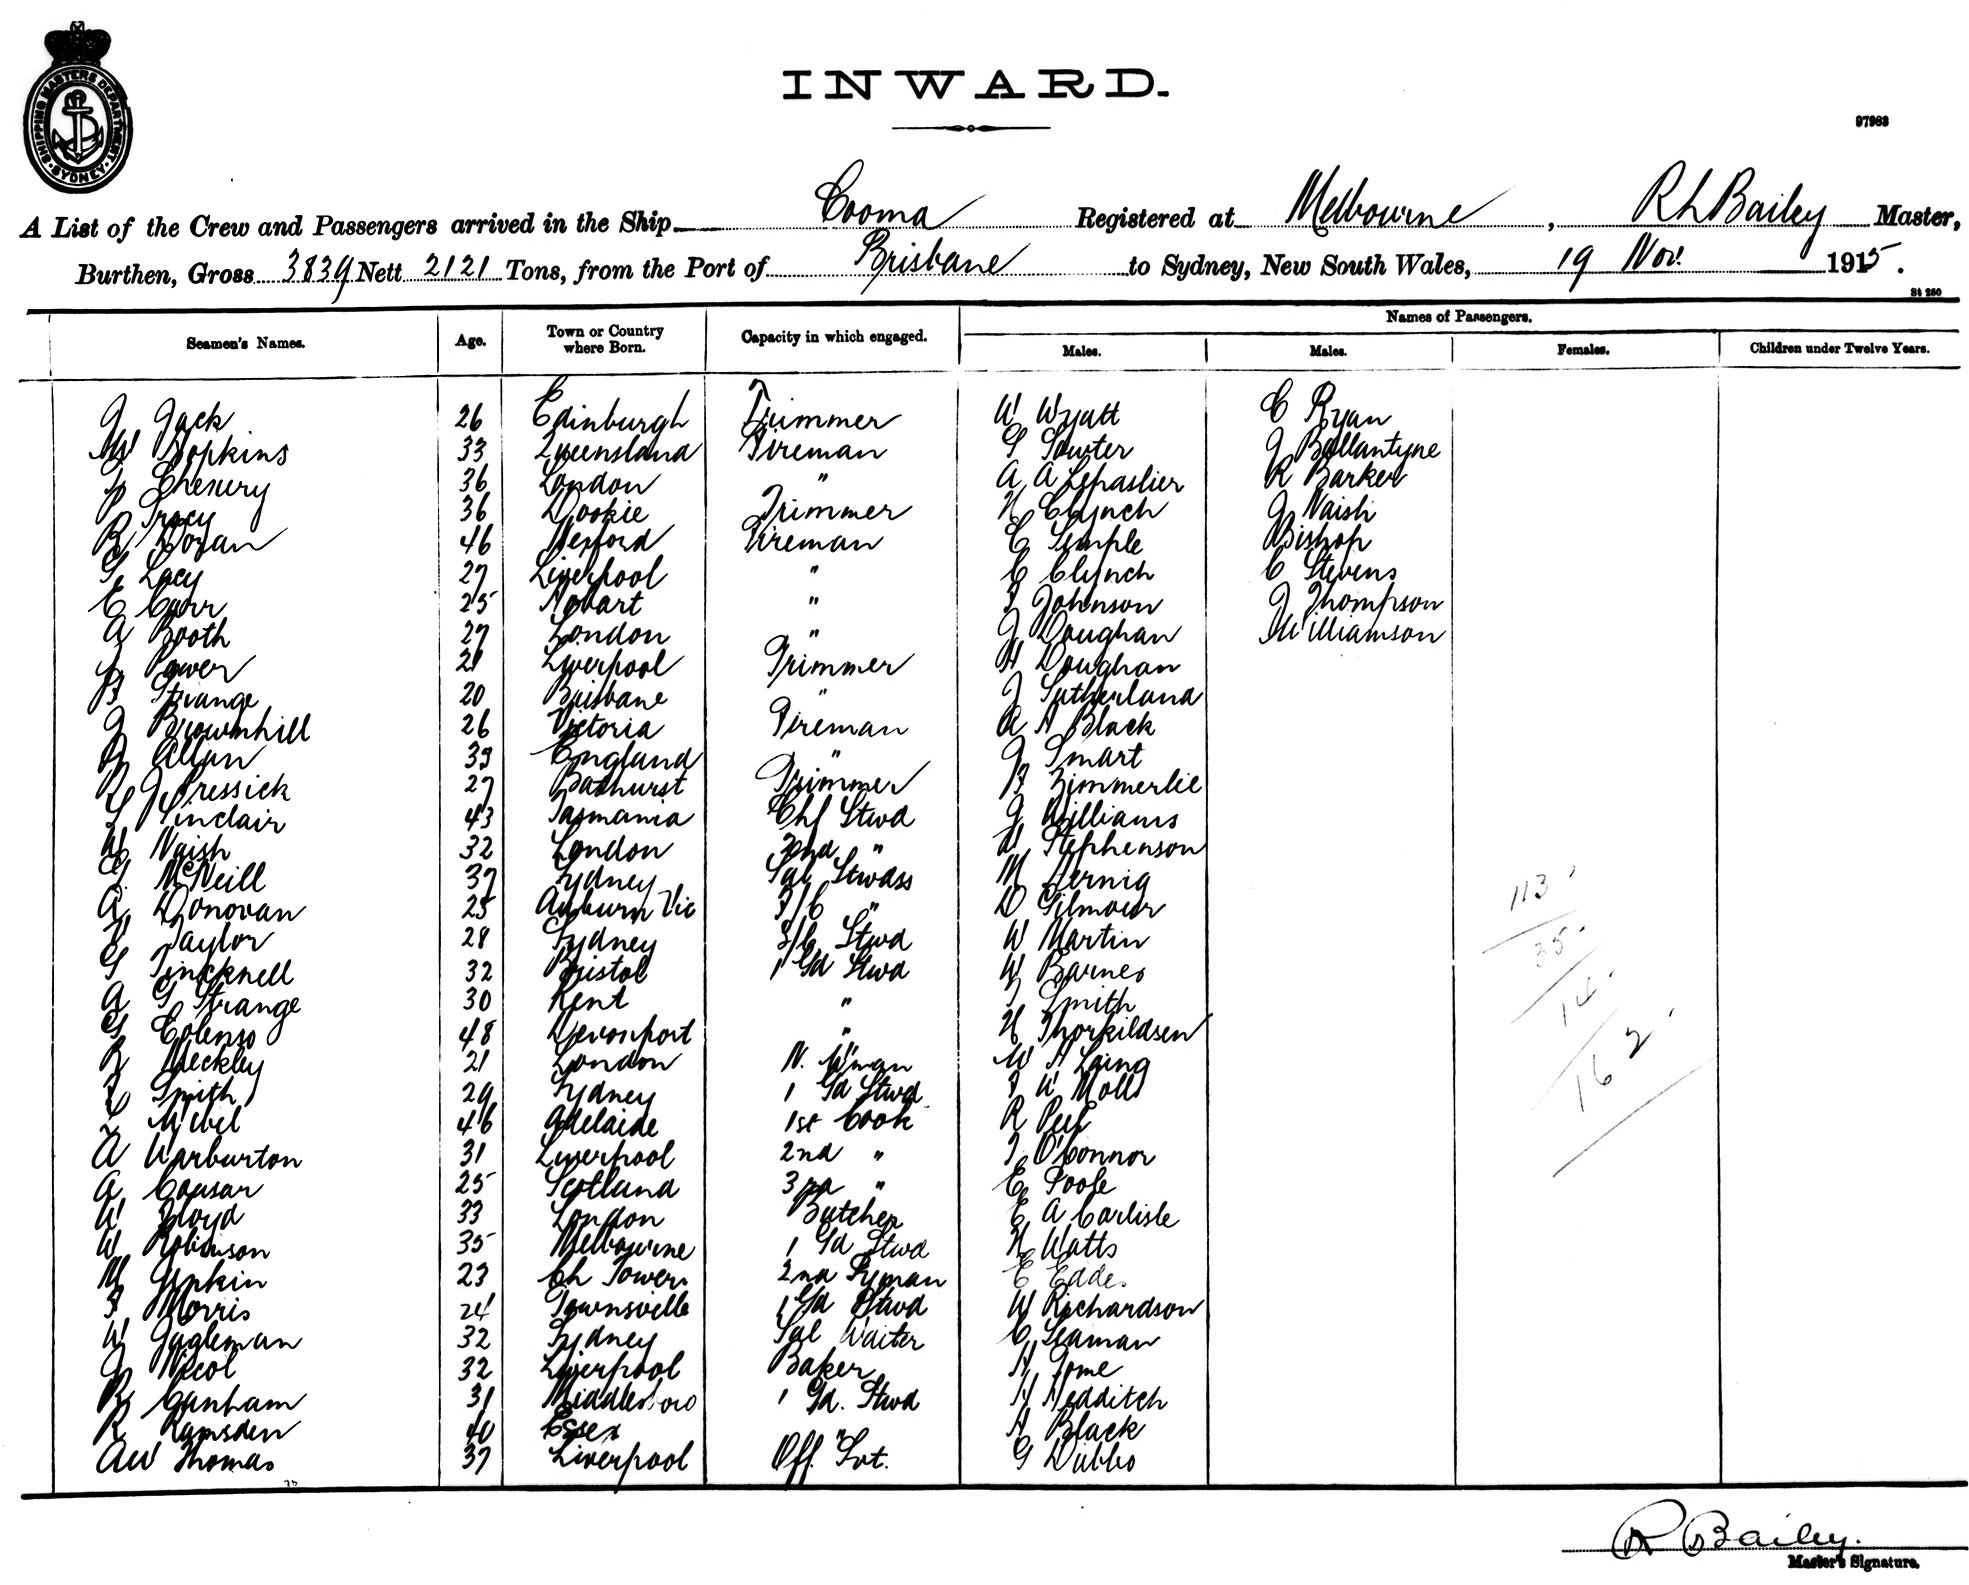 SHIPPING MASTERS DEPARTMENT SYDNEY
INWARD.
97963
A List of the Crew and Passengers arrived in the Ship Cooma Registered at Melbourne, R L Bailey Master,
Burthen, Gross 3839 Nett 2121 Tons, from the Port of Brisbane to Sydney, New South Wales, 19 Nov. 1915.
St 250
Seamen's Names. Age. Town or Country where Born. Capacity in which engaged. Names of Passengers.
Males. Males. Females. Children under Twelve Years.
J Jack 26 Edinburgh Trimmer W Wyatt C Ryan
W Hopkins 33 Queensland Fireman S Sowter J Ballantyne
Chesury 36 London " A A Lepastier R Barker
P Tracy 36 Dookie Trimmer H Clynch J Naish
R Doran 46 Wexford Fireman E Semple Bishop
G Lacy 27 Liverpool " C Clynch C Stevens
E Carr 25 Hobart " J Johnson J Thompson
A Booth 27 London " J Doughan Williamson
J Power 21 Liverpool Trimmer H Doughan
B Strange 20 Brisbane " J Sutherland
J Brownhill 26 Victoria Fireman A A Black
R Allan 39 England " J Smart
R J Pressick 27 Bathurst Trimmer B Zimmerlie
G Sinclair 43 Tasmania Chf Stwd J Williams
W Naish 32 London 2nd " H Stephenson
G McNeill 37 Sydney Sal Stwdss M Hernig
A Donovan 25 Auburn Vic S/C " D Gilmour
V Taylor 28 Sydney S/C Stwd W Martin
G Tincknell 32 Bristol 1 Gd Stwd W Barnes
A G Strange 30 Kent " J Smith
G Colenso 48 Devonport " H Thorkildsen
R Meckley 21 London N. W'man W A Laing
Smith 29 Sydney 1 Gd Stwd J W Moll
46 Adelaide 1st Cook R Peel
A Warburton 31 Liverpool 2nd " J O'Connor
A Cousar 25 Scotland 3rd " E Poole
W Lloyd 33 London Butcher E A Carlisle
W Robinson 35 Melbourne 1 Gd Stwd H Watts
M Junkin 23 Ch Towers 2nd P'yman E Eddes
J Morris 24 Townsville 1 Gd Stwd W Richardson
W Gogleman 32 Sydney Sal Waiter C Seaman
J Nicol 32 Liverpool Baker H Tome
R Canham 31 Middlesboro 1 Gd. Stwd H Hedditch
R Ramsden 40 Essex " A Black
AW Thomas 37 Liverpool Off. Svt. G Dubbo
113
35
14
162
R Bailey.
Master's Signature.